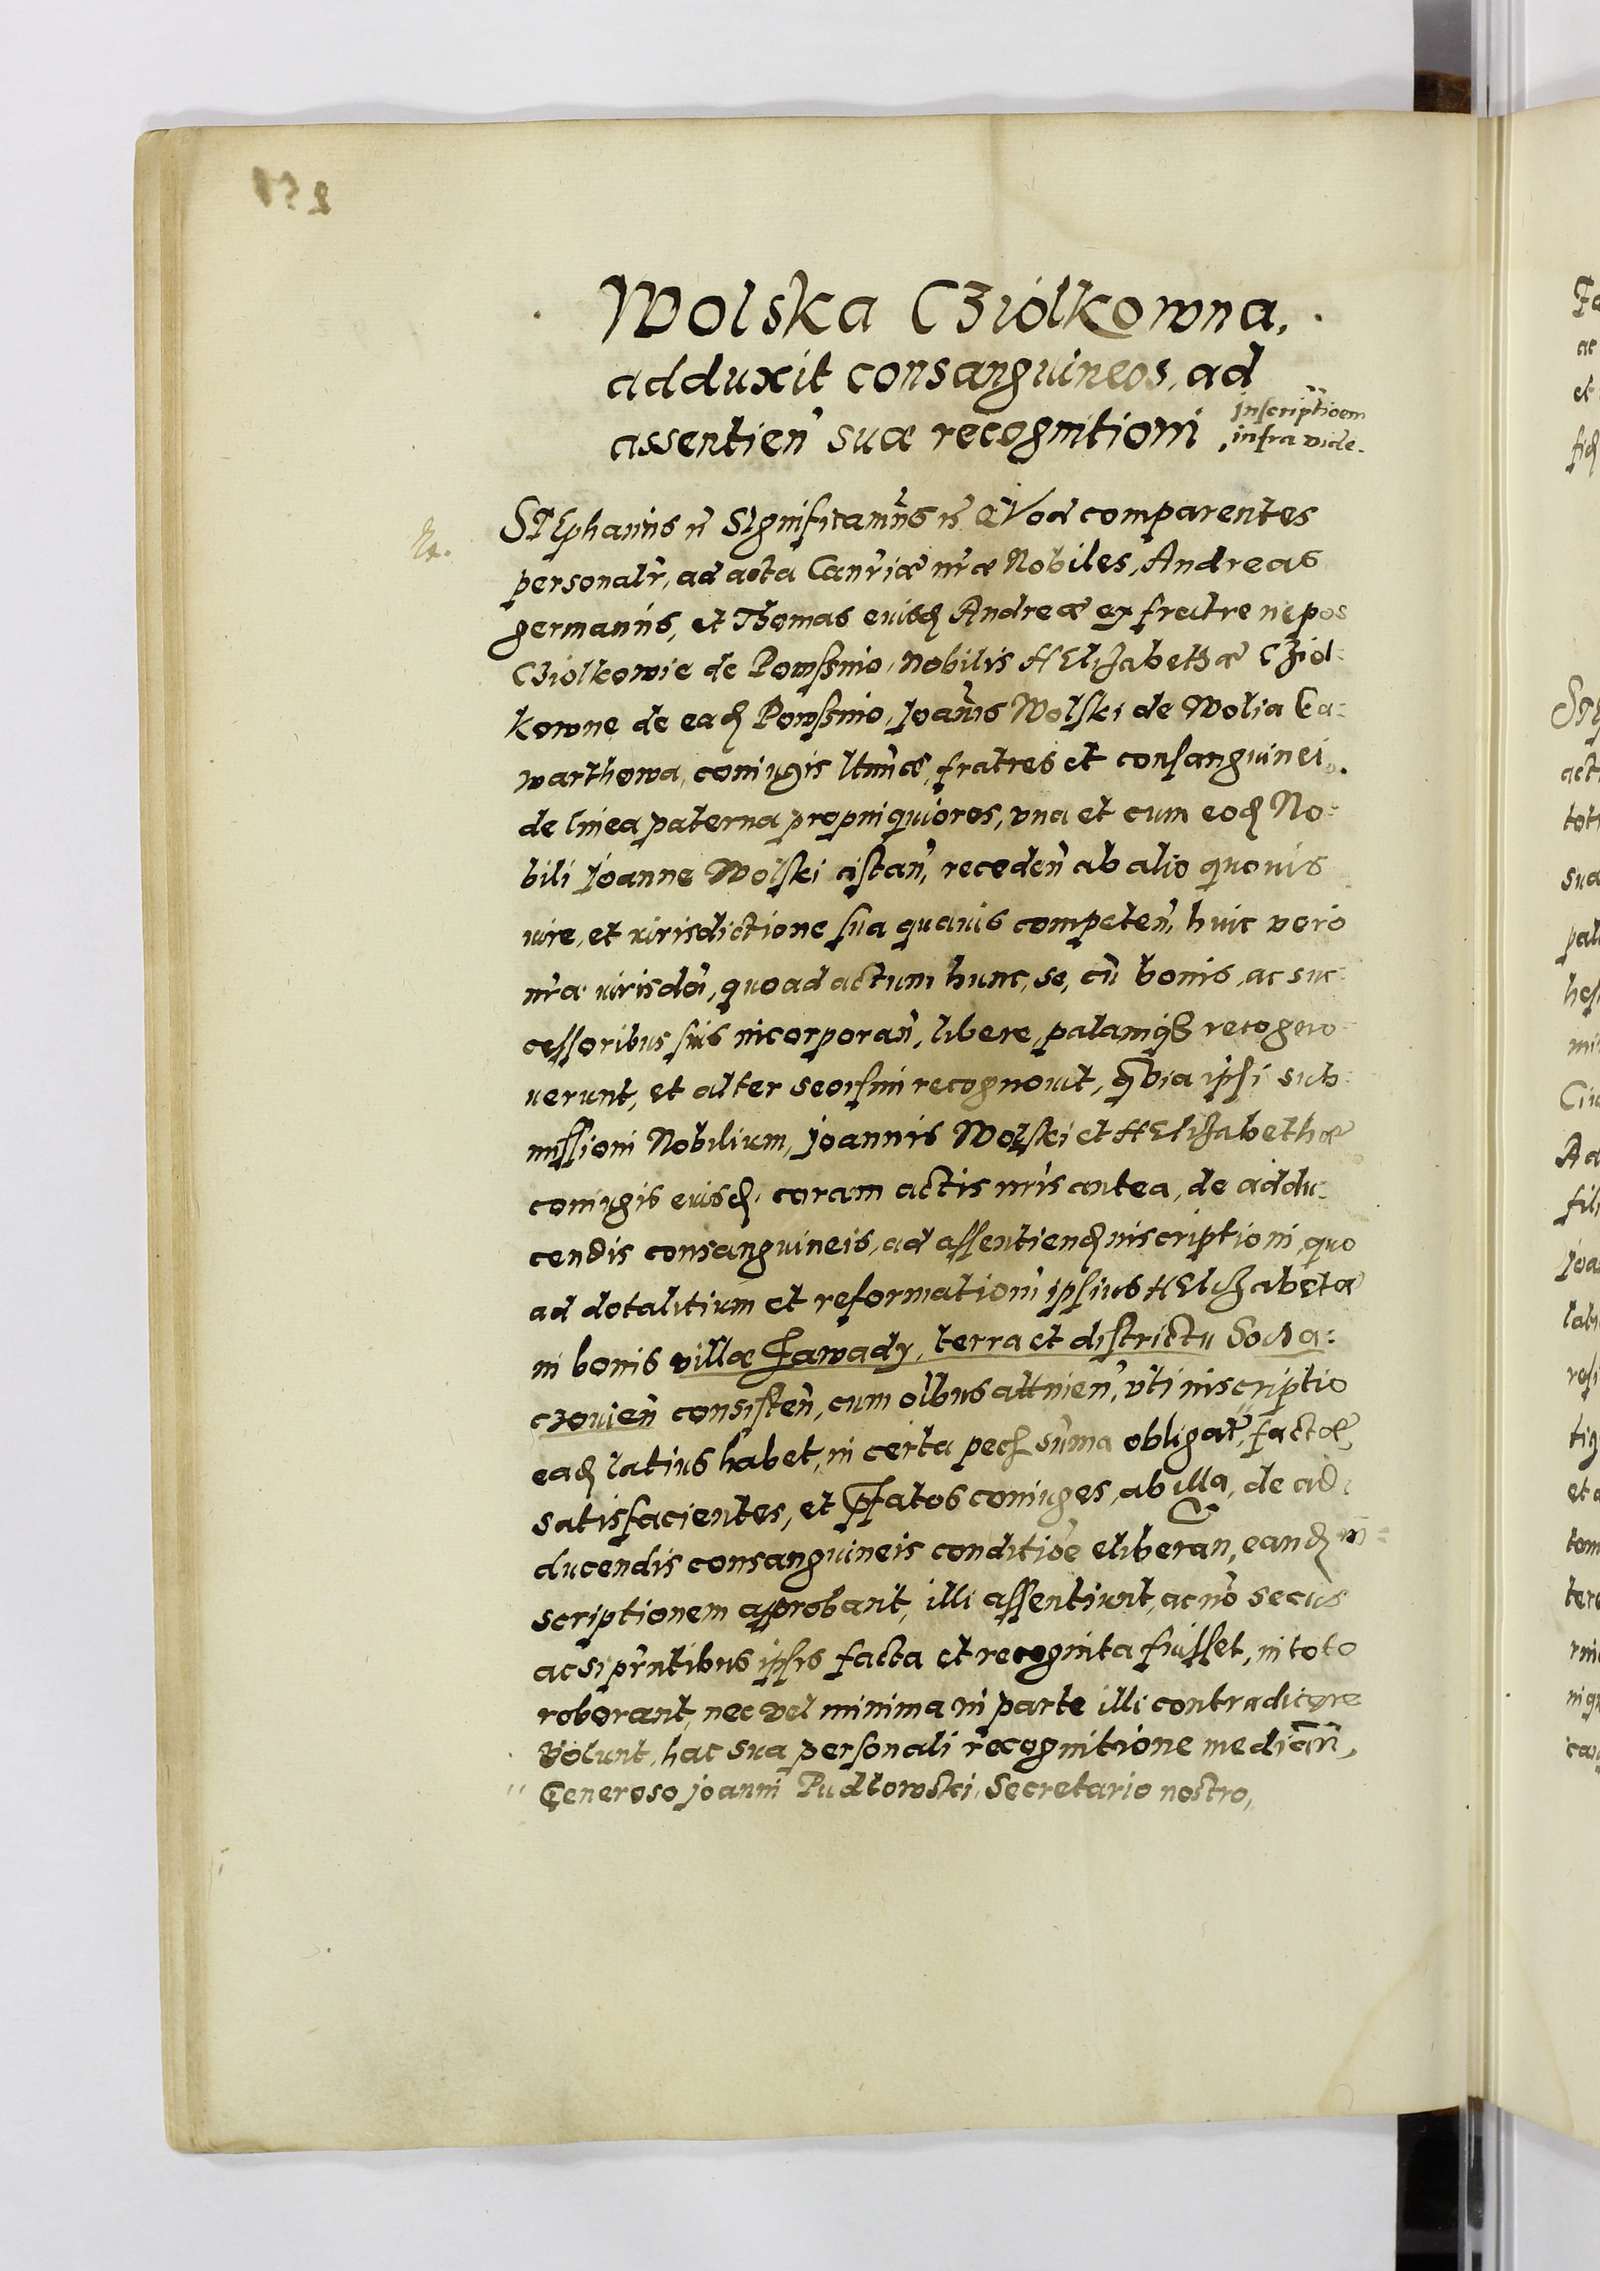 Wolska Cziolkowna,
adduxit consanguineos, ad
assentien̄ suæ recognitioni
Inscriptioem̄
infra vide.
Stephanus n̄ Significamūs n̄ Quod comparentes
personalr̄, ad acta Canr̄iæ nr̄æ Nobiles, Andreas
germanus, et Thomas eiusd̄ Andreæ ex fratre nepos
Cziolkowie de Powssino, Nobilis HElizabethæ Cziol:
kowne de ead̄ Powssino, Joan̄is Wolski de Wolia Ca:
warthowa, coniugis ltm̄æ, fratres et consanguinei,
de linea paterna propinquiores, vna et cum eod̄ No:
bili Joanne Wolski astan̄, receden̄ ab alio quouis
iure, et iurisdictione sua quauis competen̄, huic vero
nr̄æ iurisdōi, quo ad actum hunc, se, cū bonis, ac suc:
cessoribus suis incorporan̄, libere, palamqꝫ recogno:
uerunt, et alter seorsim recognouit, quia ipsi sub:
missioni Nobilium, Joannis Wolski et HElizabethæ
coniugis eiusd̄, coram actis nr̄is antea, de addu:
cendis consanguineis, ad assentiend̄ inscriptioni, quo
ad dotalitium et reformationi ipsius HElizabetæ
in bonis villæ Zawady, terra et districtu Socha:
czouien̄ consisten̄, cum oībus attinen̄, vti inscriptio
ead̄ latius habet, in certa pec̄ sūma obligat̄, factæ,
satisfacientes, et p̄fatos coniuges, ab illa, de ad:
ducendis consanguineis conditiōe eliberan̄, eand̄ in:
scriptionem approbant, illi assentiunt, ac nō secus
ac si pr̄ntibus ipsis facta et recognita fuisset, in toto
roborant, nec vel minima in parte illi contradicere
volunt, hac sua personali recognitione median̄,
Generoso Joanni Pudlowski, Secretario nostro,